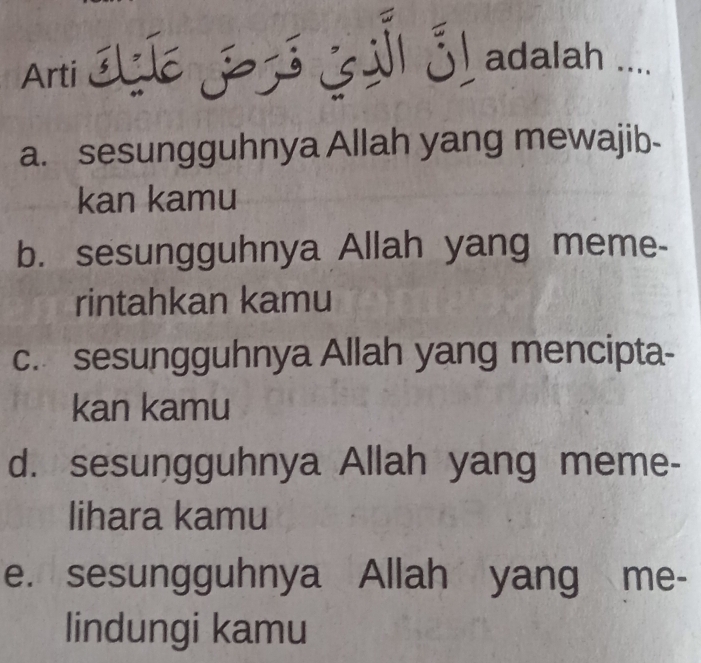 Arti اِنَّ الَّذِيْ فَرَضَ عَلَيْكَ adalah ....
a. sesungguhnya Allah yang mewajib-
kan kamu
b. sesungguhnya Allah yang meme-
rintahkan kamu
c. sesungguhnya Allah yang mencipta-
kan kamu
d. sesungguhnya Allah yang meme-
lihara kamu
e. sesungguhnya Allah yang me-
lindungi kamu